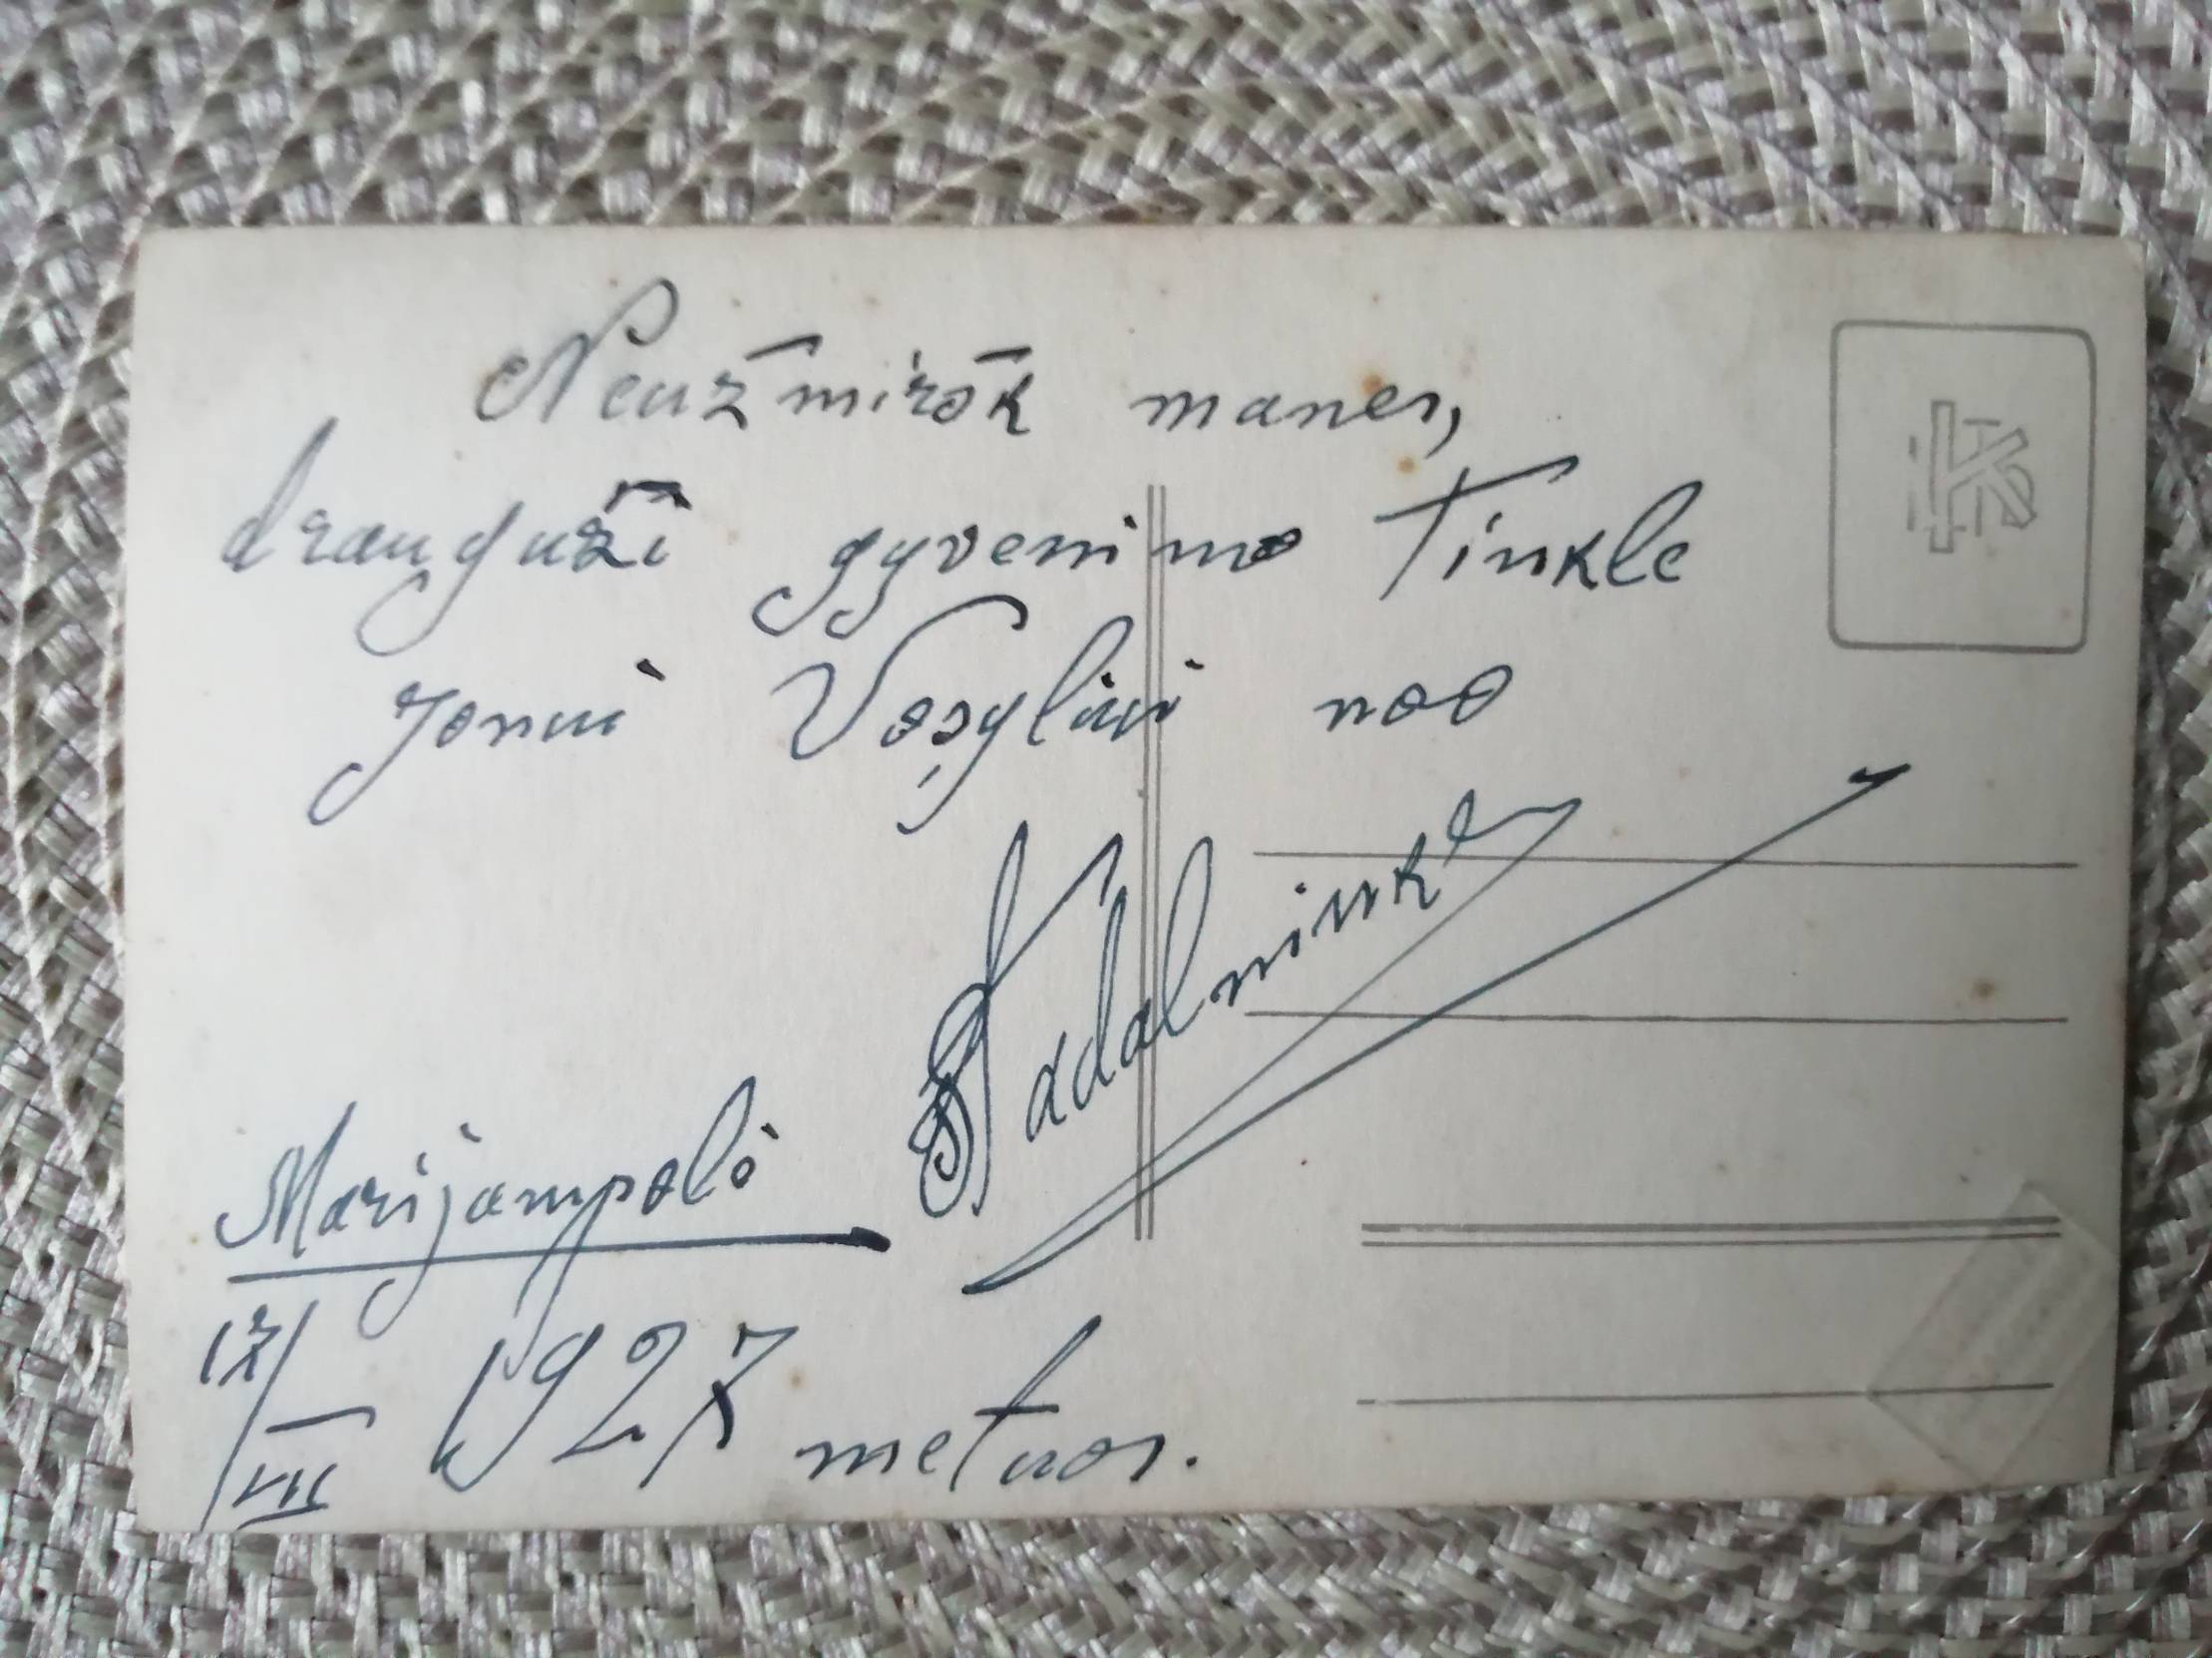 Neužmiršk manes,
drauguži gyvenimo Tinkle
Jonui Vosyliui noo
Marijampolė
12/VII 1927 metuos.